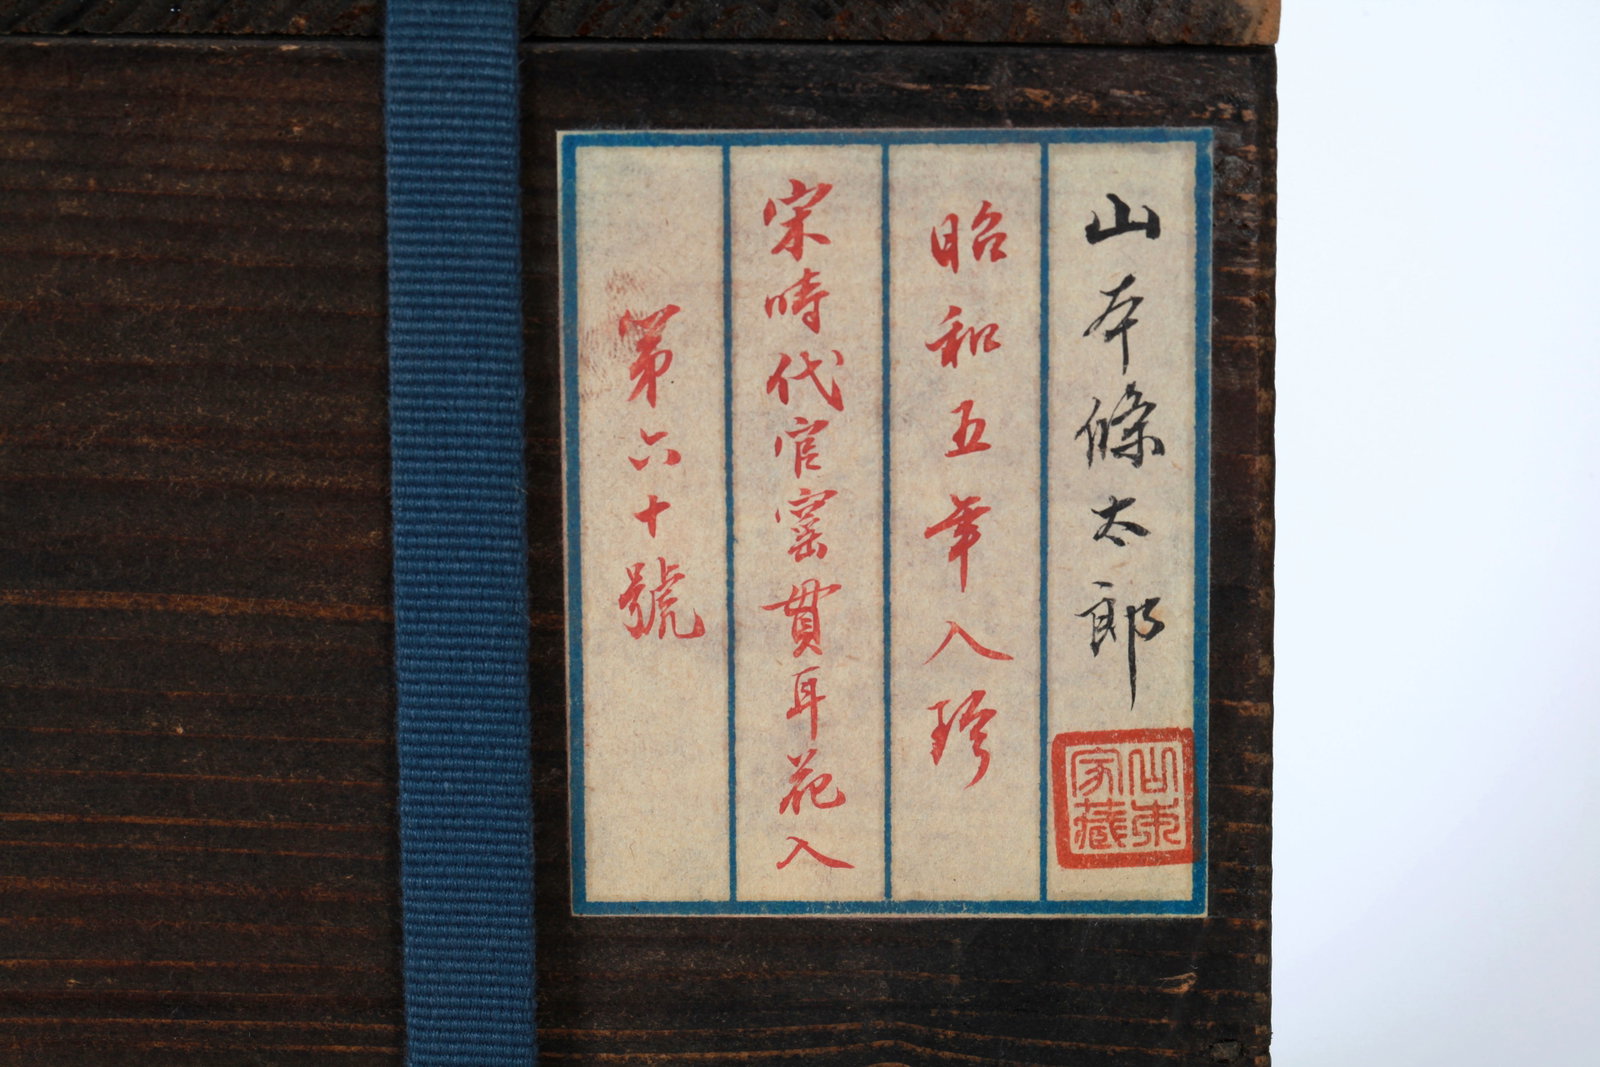 山本條太郎
山本家藏
昭和五年入珍
宋時代官窯貫耳花入
第六十號